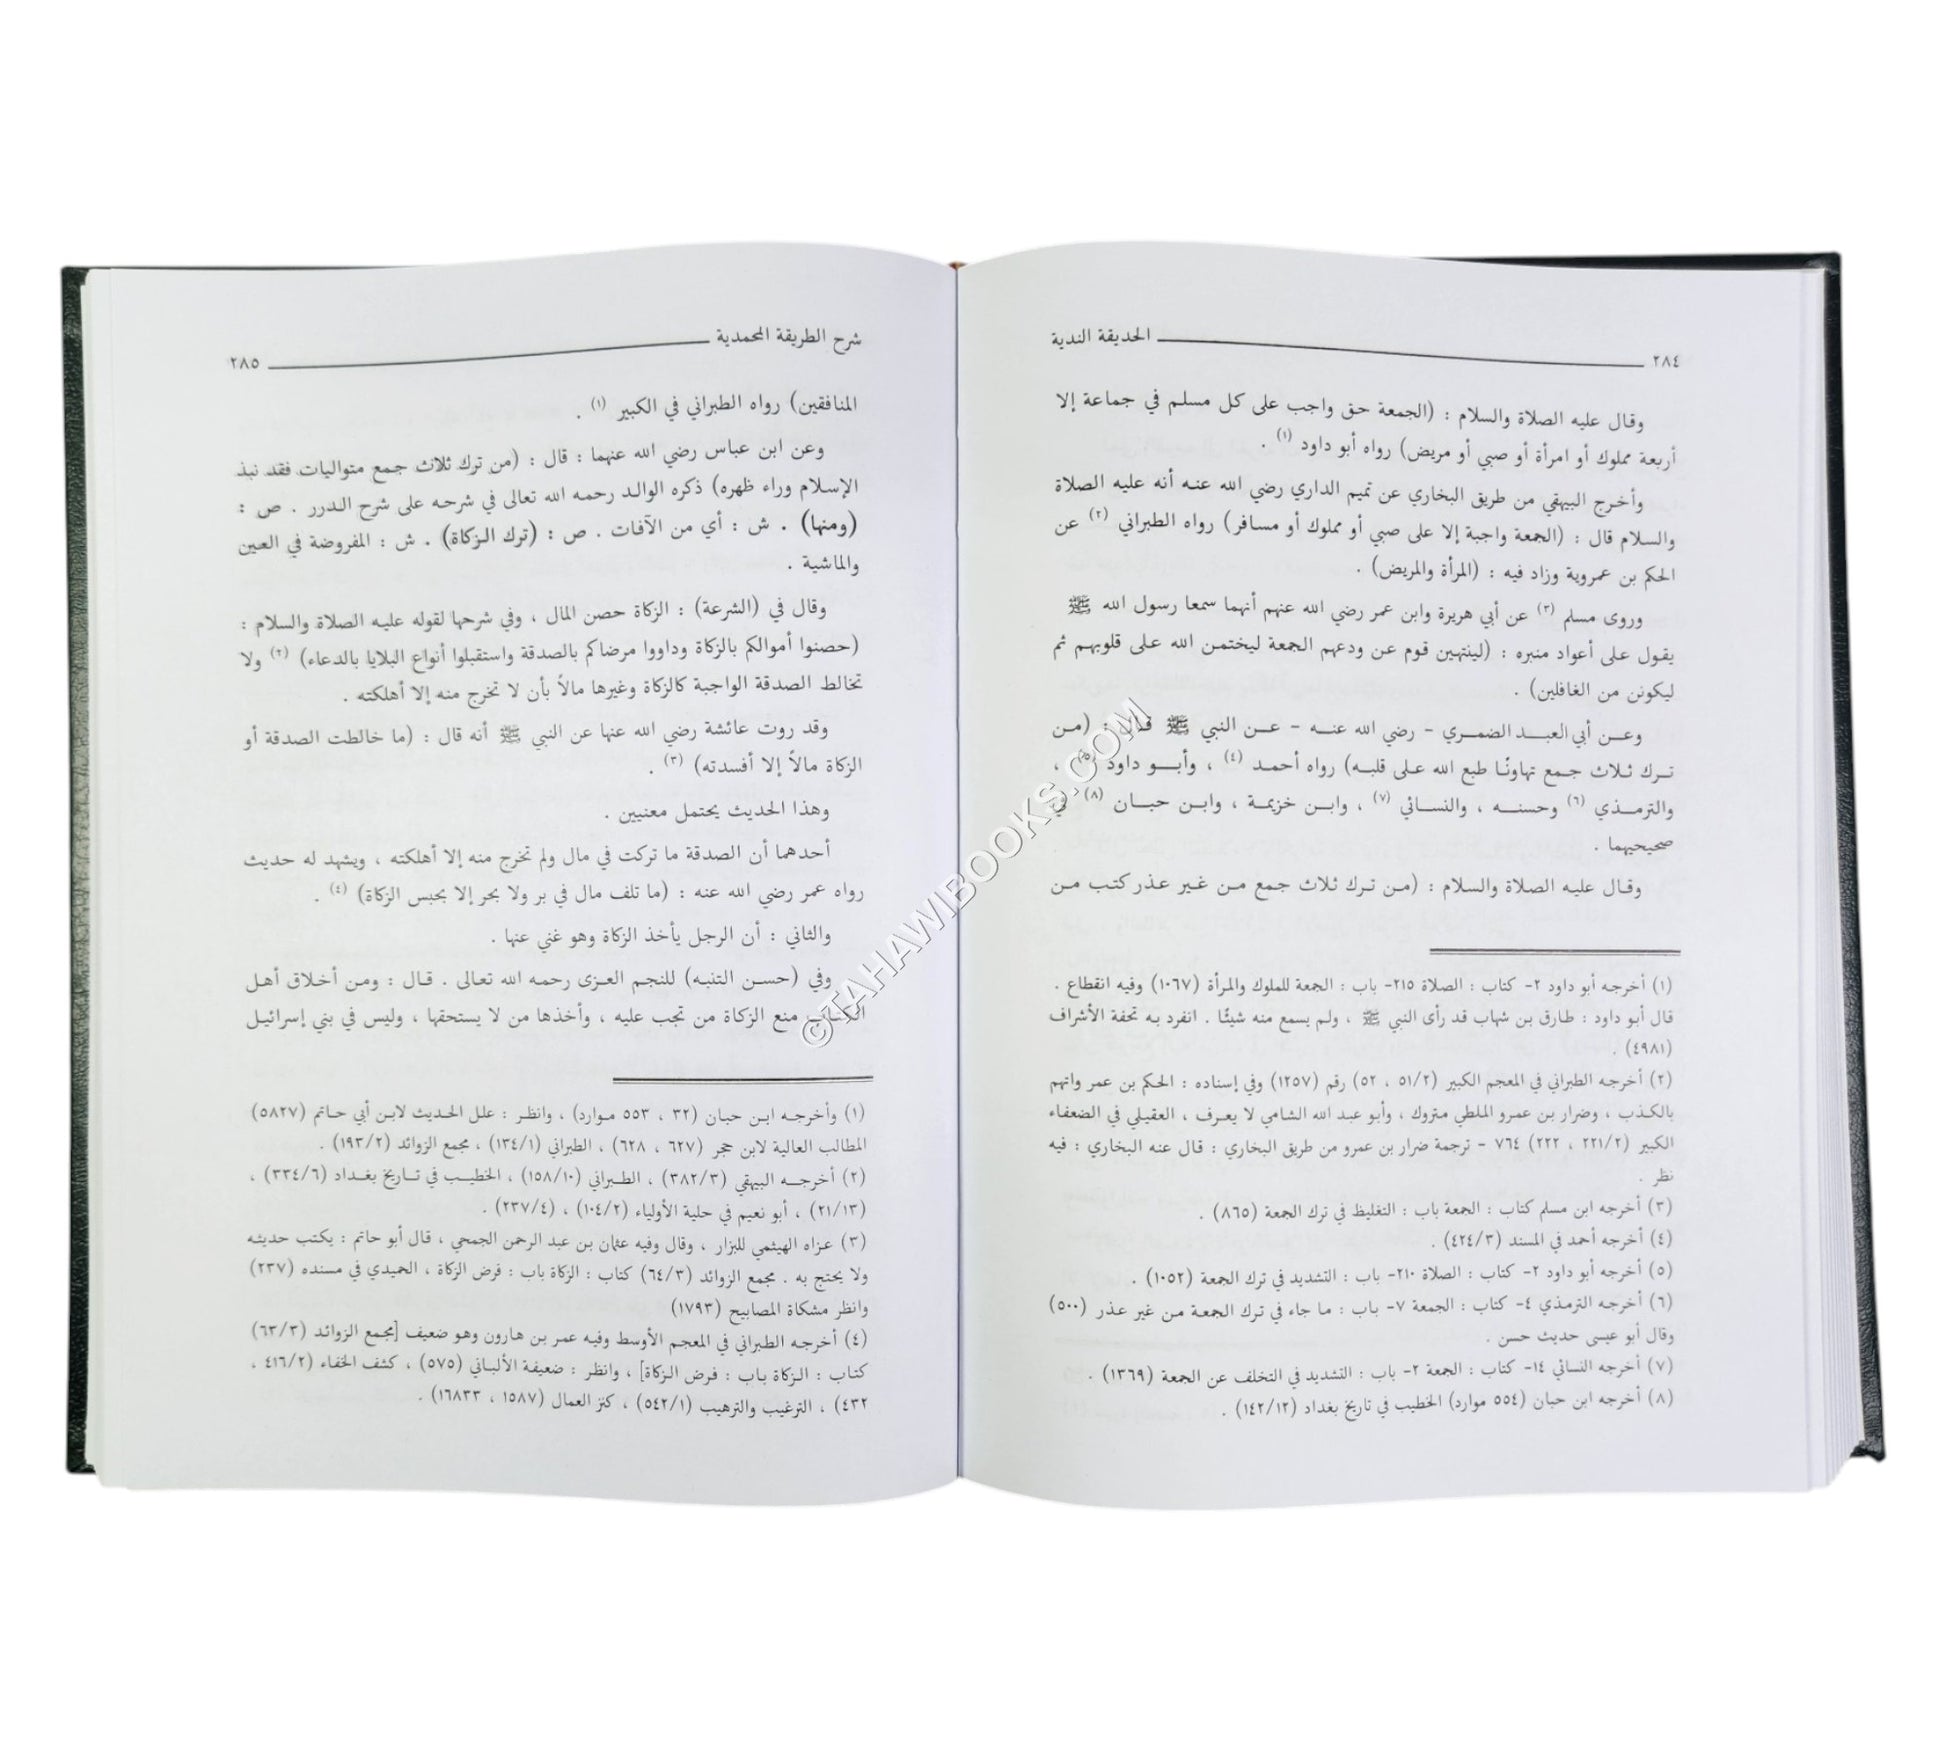 ٢٨٤ الحديقة الندية
وقال عليه الصلاة والسلام : (الجمعة حق واجب على كل مسلم في جماعة إلا
أربعة مملوك أو امرأة أو صبي أو مريض) رواه أبو داود (١) .
وأخرج البيهقي من طريق البخاري عن تميم الداري رضي الله عنه أنه عليه الصلاة
والسلام قال : (الجمعة واجبة إلا على صبي أو مملوك أو مسافر) رواه الطبراني (٢) عن
الحكم بن عمروية وزاد فيه : (المرأة والمريض) .
وروى مسلم (٣) عن أبي هريرة وابن عمر رضي الله عنهم أنهما سمعا رسول الله ﷺ
يقول على أعواد منبره : (لينتهين قوم عن ودعهم الجمعة ليختمن الله على قلوبهم ثم
ليكونن من الغافلين) .
وعن أبي العبد الضمري - رضي الله عنه - عن النبي ﷺ قال : (من
ترك ثلاث جمع تهاونًا طبع الله على قلبه) رواه أحمد (٤) ، وأبو داود (٥) ،
والترمذي (٦) وحسنه ، والنسائي (٧) ، وابن خزيمة ، وابن حبان (٨) في
صحيحيهما .
وقال عليه الصلاة والسلام : (من ترك ثلاث جمع من غير عذر كتب من
(١) أخرجه أبو داود ٢- كتاب : الصلاة ٢١٥- باب : الجمعة للملوك والمرأة (١٠٦٧) وفيه انقطاع .
قال أبو داود : طارق بن شهاب قد رأى النبي ﷺ ، ولم يسمع منه شيئًا . انفرد به تحفة الأشراف
(٤٩٨١) .
(٢) أخرجه الطبراني في المعجم الكبير (٥١/٢ ، ٥٢) رقم (١٢٥٧) وفي إسناده : الحكم بن عمر واتهم
بالكذب ، وضرار بن عمرو الملطي متروك ، وأبو عبد الله الشامي لا يعرف ، العقيلي في الضعفاء
الكبير (٢٢١/٢ ، ٢٢٢) ٧٦٤ - ترجمة ضرار بن عمرو من طريق البخاري : قال عنه البخاري : فيه
نظر .
(٣) أخرجه ابن مسلم كتاب : الجمعة باب : التغليظ في ترك الجمعة (٨٦٥) .
(٤) أخرجه أحمد في المسند (٤٢٤/٣) .
(٥) أخرجه أبو داود ٢- كتاب : الصلاة ٢١٠- باب : التشديد في ترك الجمعة (١٠٥٢) .
(٦) أخرجه الترمذي ٤- كتاب : الجمعة ٧- باب : ما جاء في ترك الجمعة من غير عذر (٥٠٠)
وقال أبو عيسى حديث حسن .
(٧) أخرجه النسائي ١٤- كتاب : الجمعة ٢- باب : التشديد في التخلف عن الجمعة (١٣٦٩) .
(٨) أخرجه ابن حبان (٥٥٤ موارد) الخطيب في تاريخ بغداد (١٤٢/١٢) .
شرح الطريقة المحمدية ٢٨٥
المنافقين) رواه الطبراني في الكبير (١) .
وعن ابن عباس رضي الله عنهما : قال : (من ترك ثلاث جمع متواليات فقد نبذ
الإسلام وراء ظهره) ذكره الوالد رحمه الله تعالى في شرحه على شرح الدرر . ص :
(ومنها) . ش : أي من الآفات . ص : (ترك الزكاة) . ش : المفروضة في العين
والماشية .
وقال في (الشرعة) : الزكاة حصن المال ، وفي شرحها لقوله عليه الصلاة والسلام :
(حصنوا أموالكم بالزكاة وداووا مرضاكم بالصدقة واستقبلوا أنواع البلايا بالدعاء) (٢) ولا
تخالط الصدقة الواجبة كالزكاة وغيرها مالاً بأن لا تخرج منه إلا أهلكته .
وقد روت عائشة رضي الله عنها عن النبي ﷺ أنه قال : (ما خالطت الصدقة أو
الزكاة مالاً إلا أفسدته) (٣) .
وهذا الحديث يحتمل معنيين .
أحدهما أن الصدقة ما تركت في مال ولم تخرج منه إلا أهلكته ، ويشهد له حديث
رواه عمر رضي الله عنه : (ما تلف مال في بر ولا بحر إلا بحبس الزكاة) (٤) .
والثاني : أن الرجل يأخذ الزكاة وهو غني عنها .
وفي (حسن التنبه) للنجم العزى رحمه الله تعالى . قال : ومن أخلاق أهل
الكتاب منع الزكاة من تجب عليه ، وأخذها من لا يستحقها ، وليس في بني إسرائيل
(١) وأخرجه ابن حبان (٣٢ ، ٥٥٣ موارد) ، وانظر : علل الحديث لابن أبي حاتم (٥٨٢٧)
المطالب العالية لابن حجر (٦٢٧ ، ٦٢٨) ، الطبراني (١٣٤/١) ، مجمع الزوائد (١٩٣/٢) .
(٢) أخرجه البيهقي (٣٨٢/٣) ، الطبراني (١٥٨/١٠) ، الخطيب في تاريخ بغداد (٣٣٤/٦) ،
(٢١/١٣) ، أبو نعيم في حلية الأولياء (١٠٤/٢) ، (٢٣٧/٤) .
(٣) عزاه الهيثمي للبزار ، وقال وفيه عثمان بن عبد الرحمن الجمحي ، قال أبو حاتم : يكتب حديثه
ولا يحتج به . مجمع الزوائد (٦٤/٣) كتاب : الزكاة باب : فرض الزكاة ، الحميدي في مسنده (٢٣٧)
وانظر مشكاة المصابيح (١٧٩٣)
(٤) أخرجه الطبراني في المعجم الأوسط وفيه عمر بن هارون وهو ضعيف [مجمع الزوائد (٦٣/٣)
كتاب : الزكاة باب : فرض الزكاة] ، وانظر : ضعيفة الألباني (٥٧٥) ، كشف الخفاء (٤١٦/٢ ،
٤٣٢) ، الترغيب والترهيب (٥٤٢/١) ، كنز العمال (١٥٨٧ ، ١٦٨٣٣) .
© TAHAWIBOOKS.COM